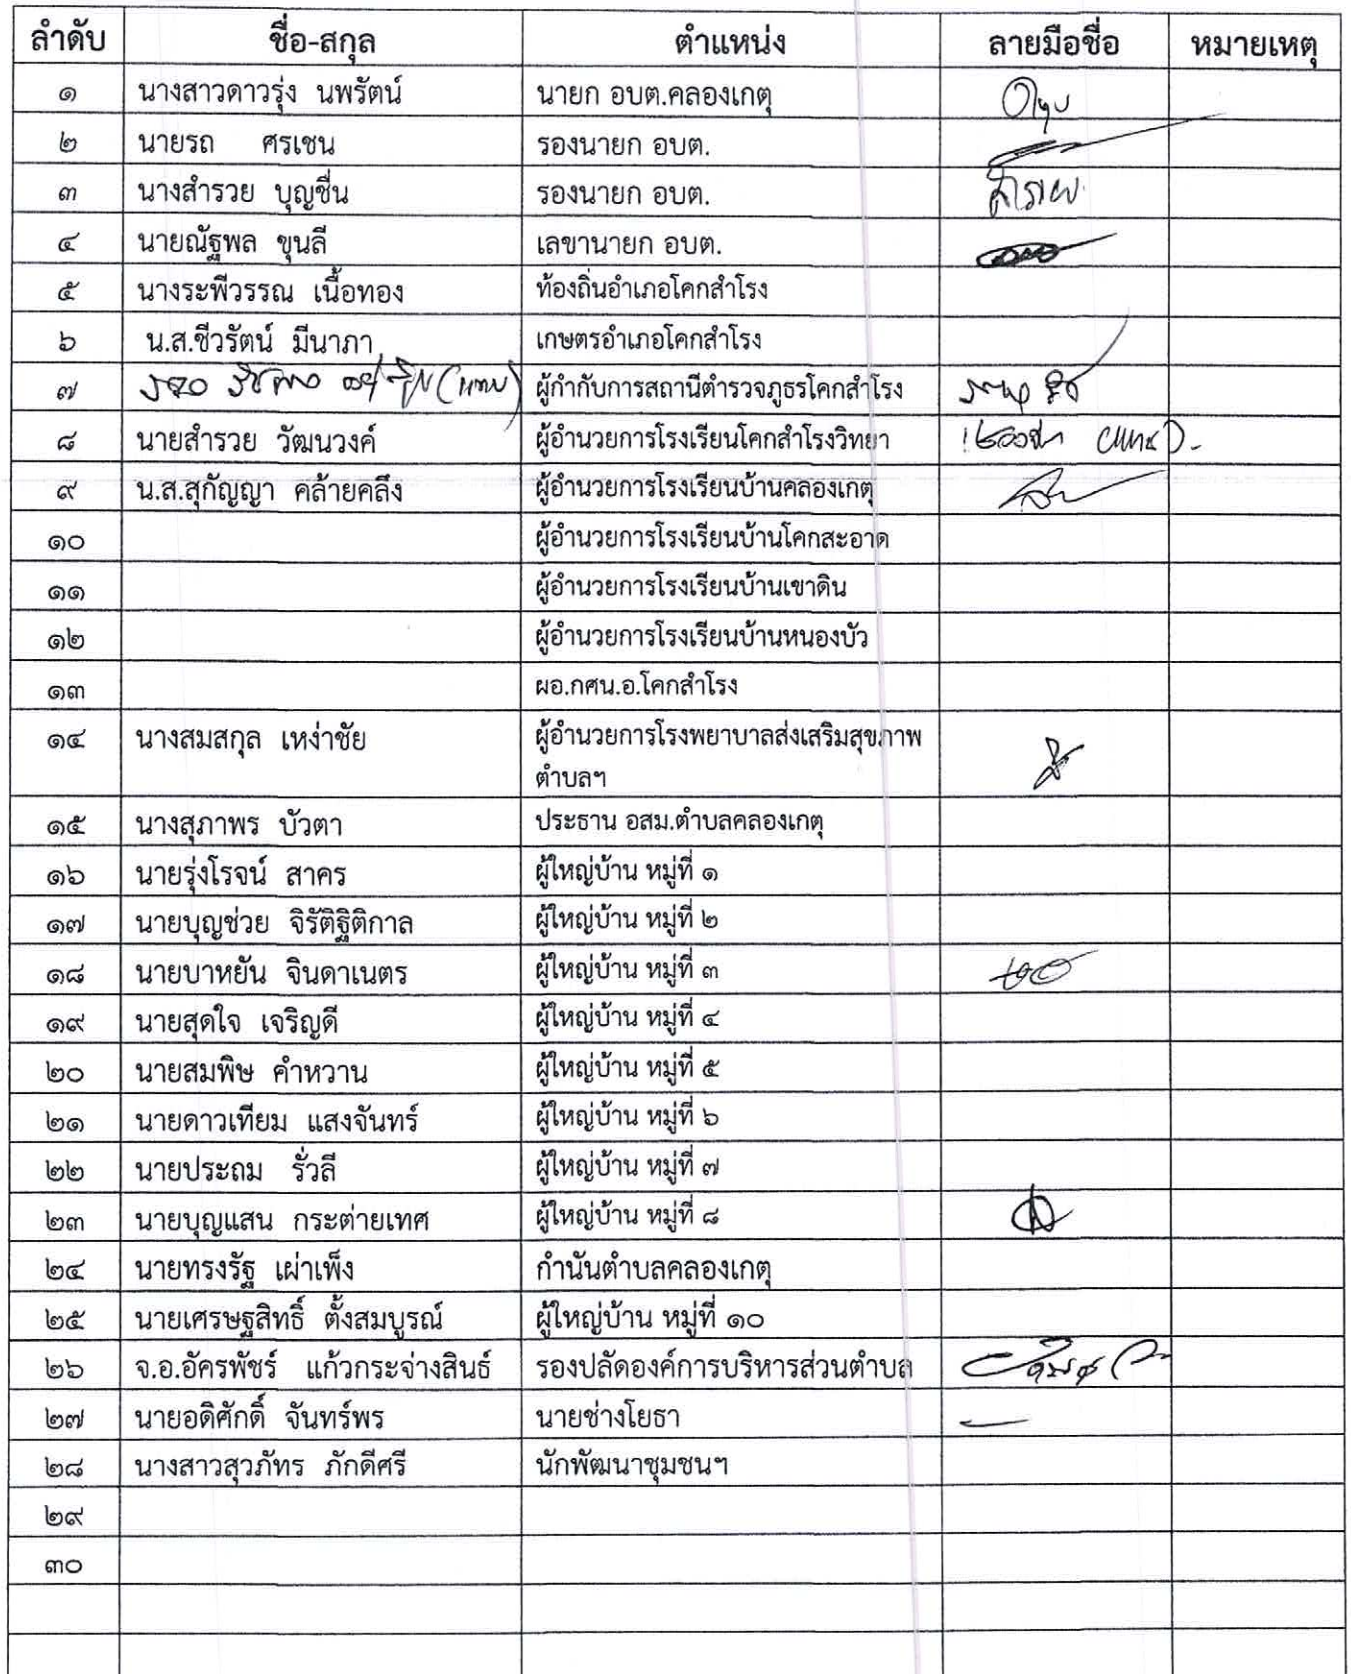 ลำดับ ชื่อ-สกุล ตำแหน่ง ลายมือชื่อ หมายเหตุ
๑ นางสาวดาวรุ่ง นพรัตน์ นายก อบต.คลองเกตุ
๒ นายรถ ศรเชน รองนายก อบต.
๓ นางสำรวย บุญชื่น รองนายก อบต. สำรวย
๔ นายณัฐพล ขุนลี เลขานายก อบต.
๕ นางระพีวรรณ เนื้อทอง ท้องถิ่นอำเภอโคกสำโรง
๖ น.ส.ชีวรัตน์ มีนาภา เกษตรอำเภอโคกสำโรง
๗ (แทน) ผู้กำกับการสถานีตำรวจภูธรโคกสำโรง
๘ นายสำรวย วัฒนวงค์ ผู้อำนวยการโรงเรียนโคกสำโรงวิทยา
๙ น.ส.สุกัญญา คล้ายคลึง ผู้อำนวยการโรงเรียนบ้านคลองเกตุ
๑๐ ผู้อำนวยการโรงเรียนบ้านโคกสะอาด
๑๑ ผู้อำนวยการโรงเรียนบ้านเขาดิน
๑๒ ผู้อำนวยการโรงเรียนบ้านหนองบัว
๑๓ ผอ.กศน.อ.โคกสำโรง
๑๔ นางสมสกุล เหง่าชัย ผู้อำนวยการโรงพยาบาลส่งเสริมสุขภาพ
ตำบลฯ
๑๕ นางสุภาพร บัวตา ประธาน อสม.ตำบลคลองเกตุ
๑๖ นายรุ่งโรจน์ สาคร ผู้ใหญ่บ้าน หมู่ที่ ๑
๑๗ นายบุญช่วย จิรัติฐิติกาล ผู้ใหญ่บ้าน หมู่ที่ ๒
๑๘ นายบาหยัน จินดาเนตร ผู้ใหญ่บ้าน หมู่ที่ ๓
๑๙ นายสุดใจ เจริญดี ผู้ใหญ่บ้าน หมู่ที่ ๔
๒๐ นายสมพิษ คำหวาน ผู้ใหญ่บ้าน หมู่ที่ ๕
๒๑ นายดาวเทียม แสงจันทร์ ผู้ใหญ่บ้าน หมู่ที่ ๖
๒๒ นายประถม รั่วลี ผู้ใหญ่บ้าน หมู่ที่ ๗
๒๓ นายบุญแสน กระต่ายเทศ ผู้ใหญ่บ้าน หมู่ที่ ๘
๒๔ นายทรงรัฐ เผ่าเพ็ง กำนันตำบลคลองเกตุ
๒๕ นายเศรษฐสิทธิ์ ตั้งสมบูรณ์ ผู้ใหญ่บ้าน หมู่ที่ ๑๐
๒๖ จ.อ.อัครพัชร์ แก้วกระจ่างสินธ์ รองปลัดองค์การบริหารส่วนตำบล
๒๗ นายอดิศักดิ์ จันทร์พร นายช่างโยธา
๒๘ นางสาวสุวภัทร ภักดีศรี นักพัฒนาชุมชนฯ
๒๙
๓๐